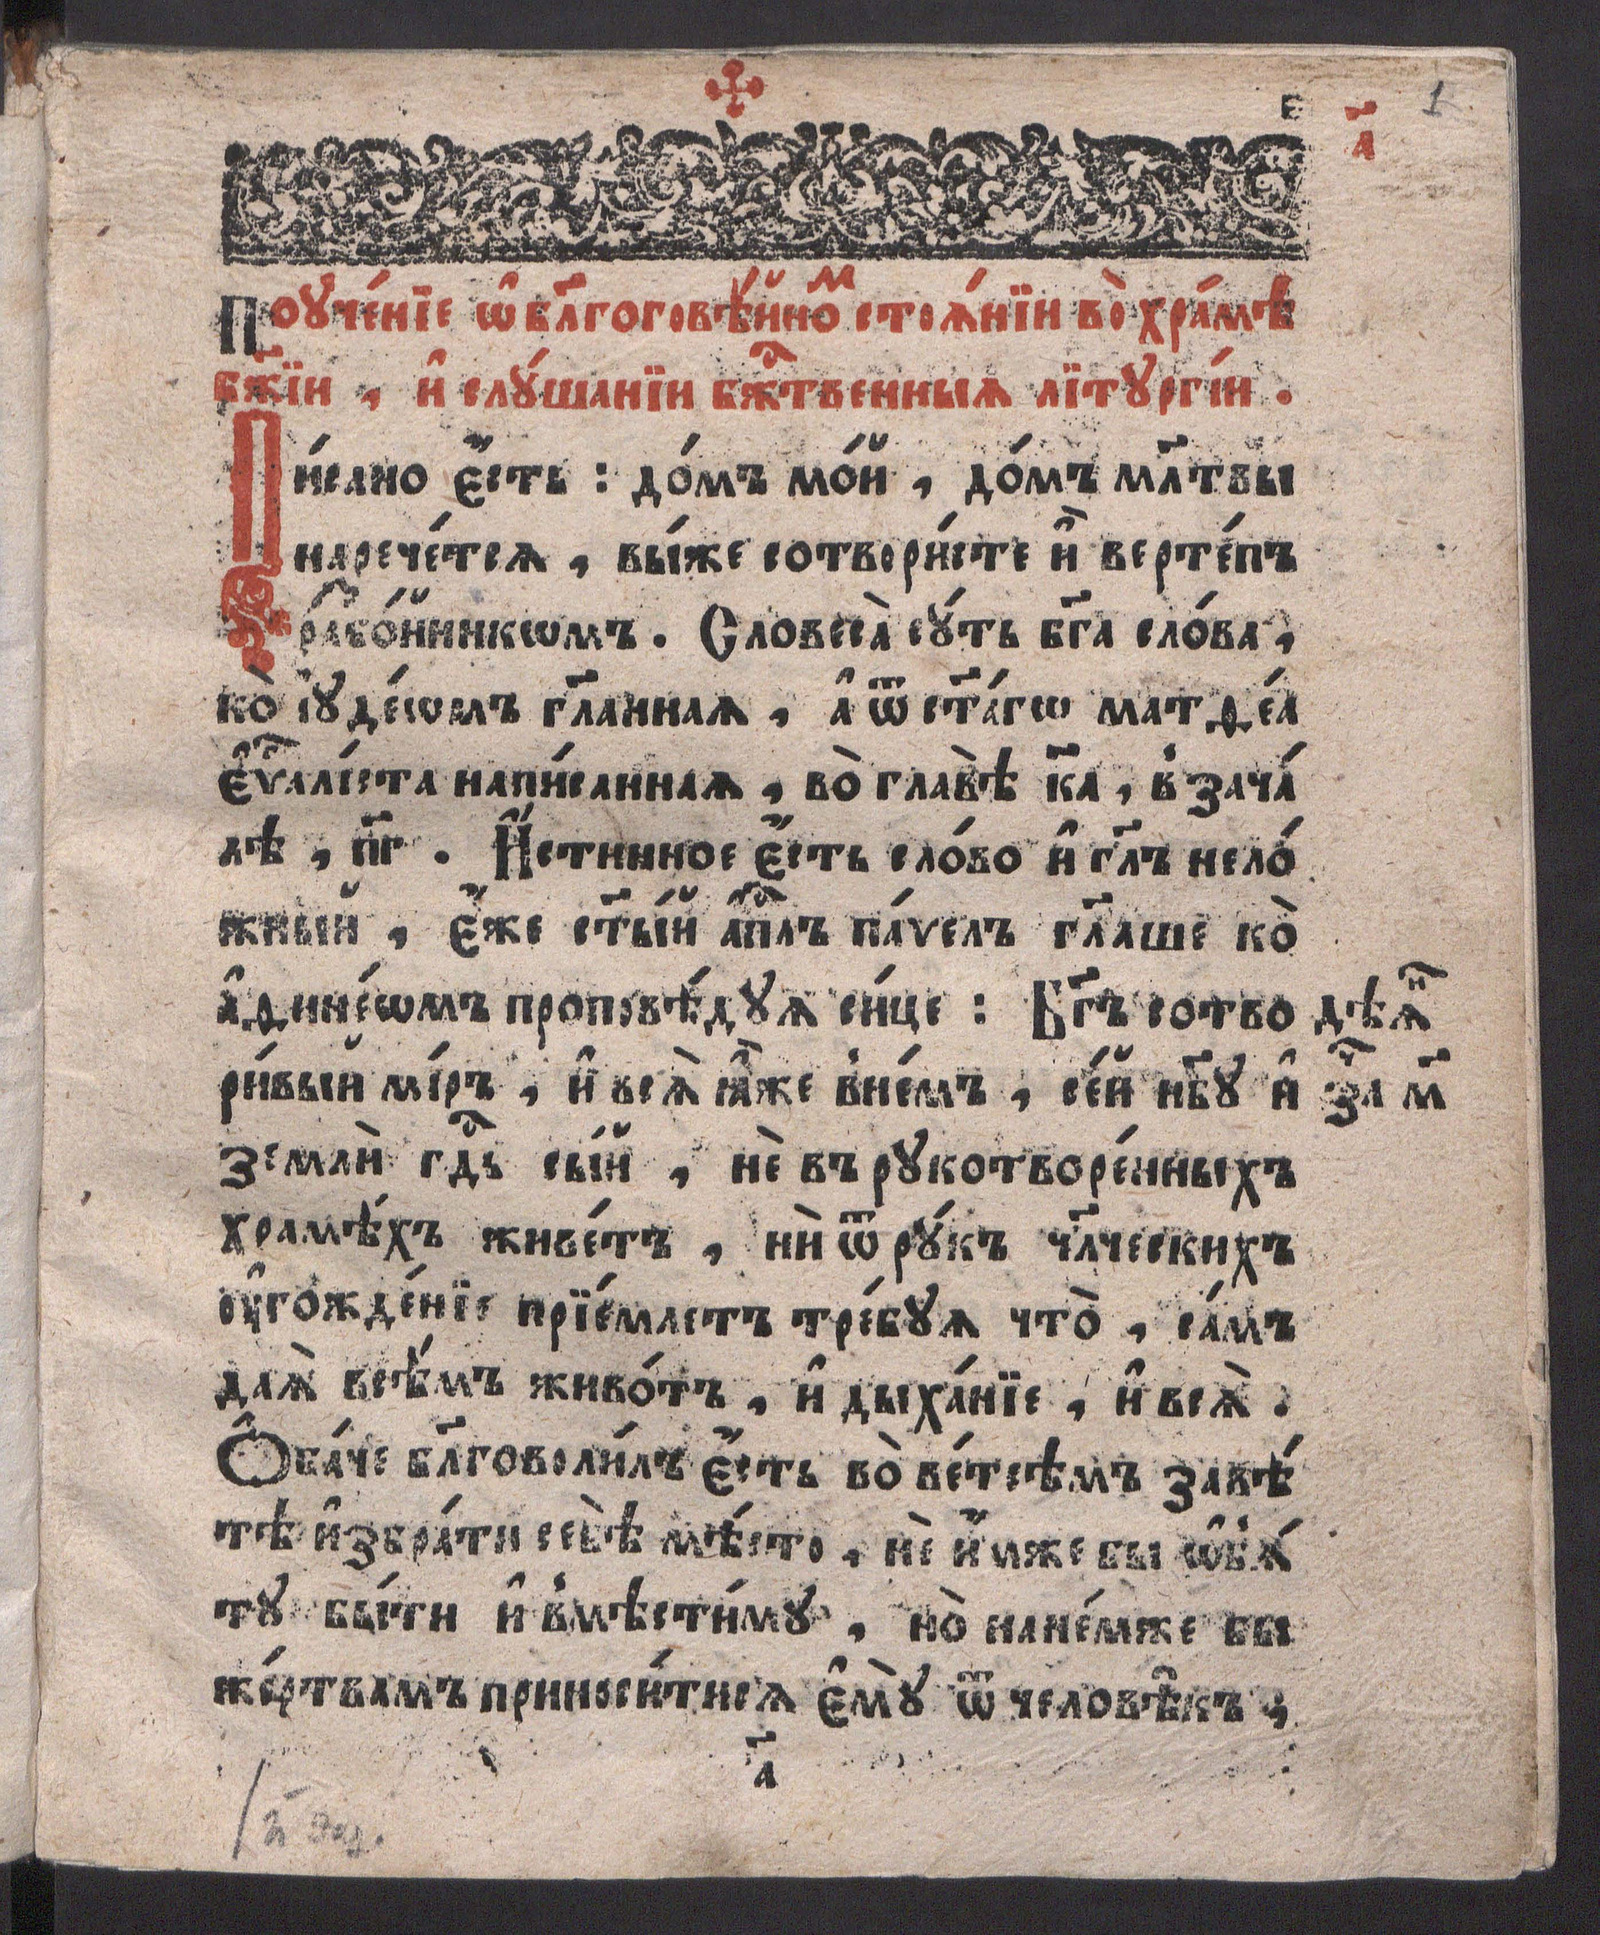 1
а҃
Поꙋче́нїе ѡ҆ бл҃гоговѣ́йноⷨ стоѧ́нїи во̀ хра́мѣ
бж҃їи, и҆ слꙋ́шанїи бжⷭ҇твенныѧ лїтꙋргі́и.
Пи́сано є҆́сть: до́мъ мо́й, до́мъ мл҃твы
нарече́тсѧ, вы́же сотвори́сте и҆̀ верте́пъ
раⷥбо́йникѡмъ. Словеса̀ сꙋ́ть бг҃а сло́ва,
ко̀ і҆ꙋде́ѡмъ гл҃аннаѧ, а҆ ѿ ст҃а́гѡ матѳе́а
є҆ѵⷢ҇алі́ста напи́саннаѧ, во̀ главѣ̀ к҃а, в̾ зача́
лѣ, п҃г. И҆́стинное є҆́сть сло́во и҆ гл҃ъ нело́
жный, є҆́же ст҃ы́й а҆пⷭ҇лъ па́ѵелъ гл҃аше ко̀
а҆ѳине́ѡмъ проповѣ́дꙋѧ си́це: Бг҃ъ сотво
дѣѧⷩ҇
ри́вый мі́ръ, и҆ всѧ̀ ꙗ҆̀же в̾не́мъ, се́й нб҃ꙋ и҆
заⷱ҇ м҃
землѝ гдⷭ҇ь сы́й, нѐ въ рꙋкотворе́нныхъ
храмѣ́хъ живе́тъ, нѝ ѿ рꙋ́къ чл҃ческихъ
ᲂу҆гожде́нїе прїе́млетъ тре́бꙋѧ что̀, са́мъ
даѧ̀ всѣ́мъ живо́тъ, и҆ дыха́нїе, и҆ всѧ̀.
Ѻ҆ба́че бл҃говоли́лъ є҆́сть во̀ ве́тсѣмъ завѣ́
тѣ и҆збра́ти себѣ̀ мѣ́сто, нѐ и҆́мже бы ѡ҆б̾ѧ́
тꙋ бы́ти и҆ в̾мѣсти́мꙋ, но̀ нане́мже бы
же́ртвамъ приноси́тисѧ є҆мꙋ̀ ѿ человѣ̑къ,
а҃